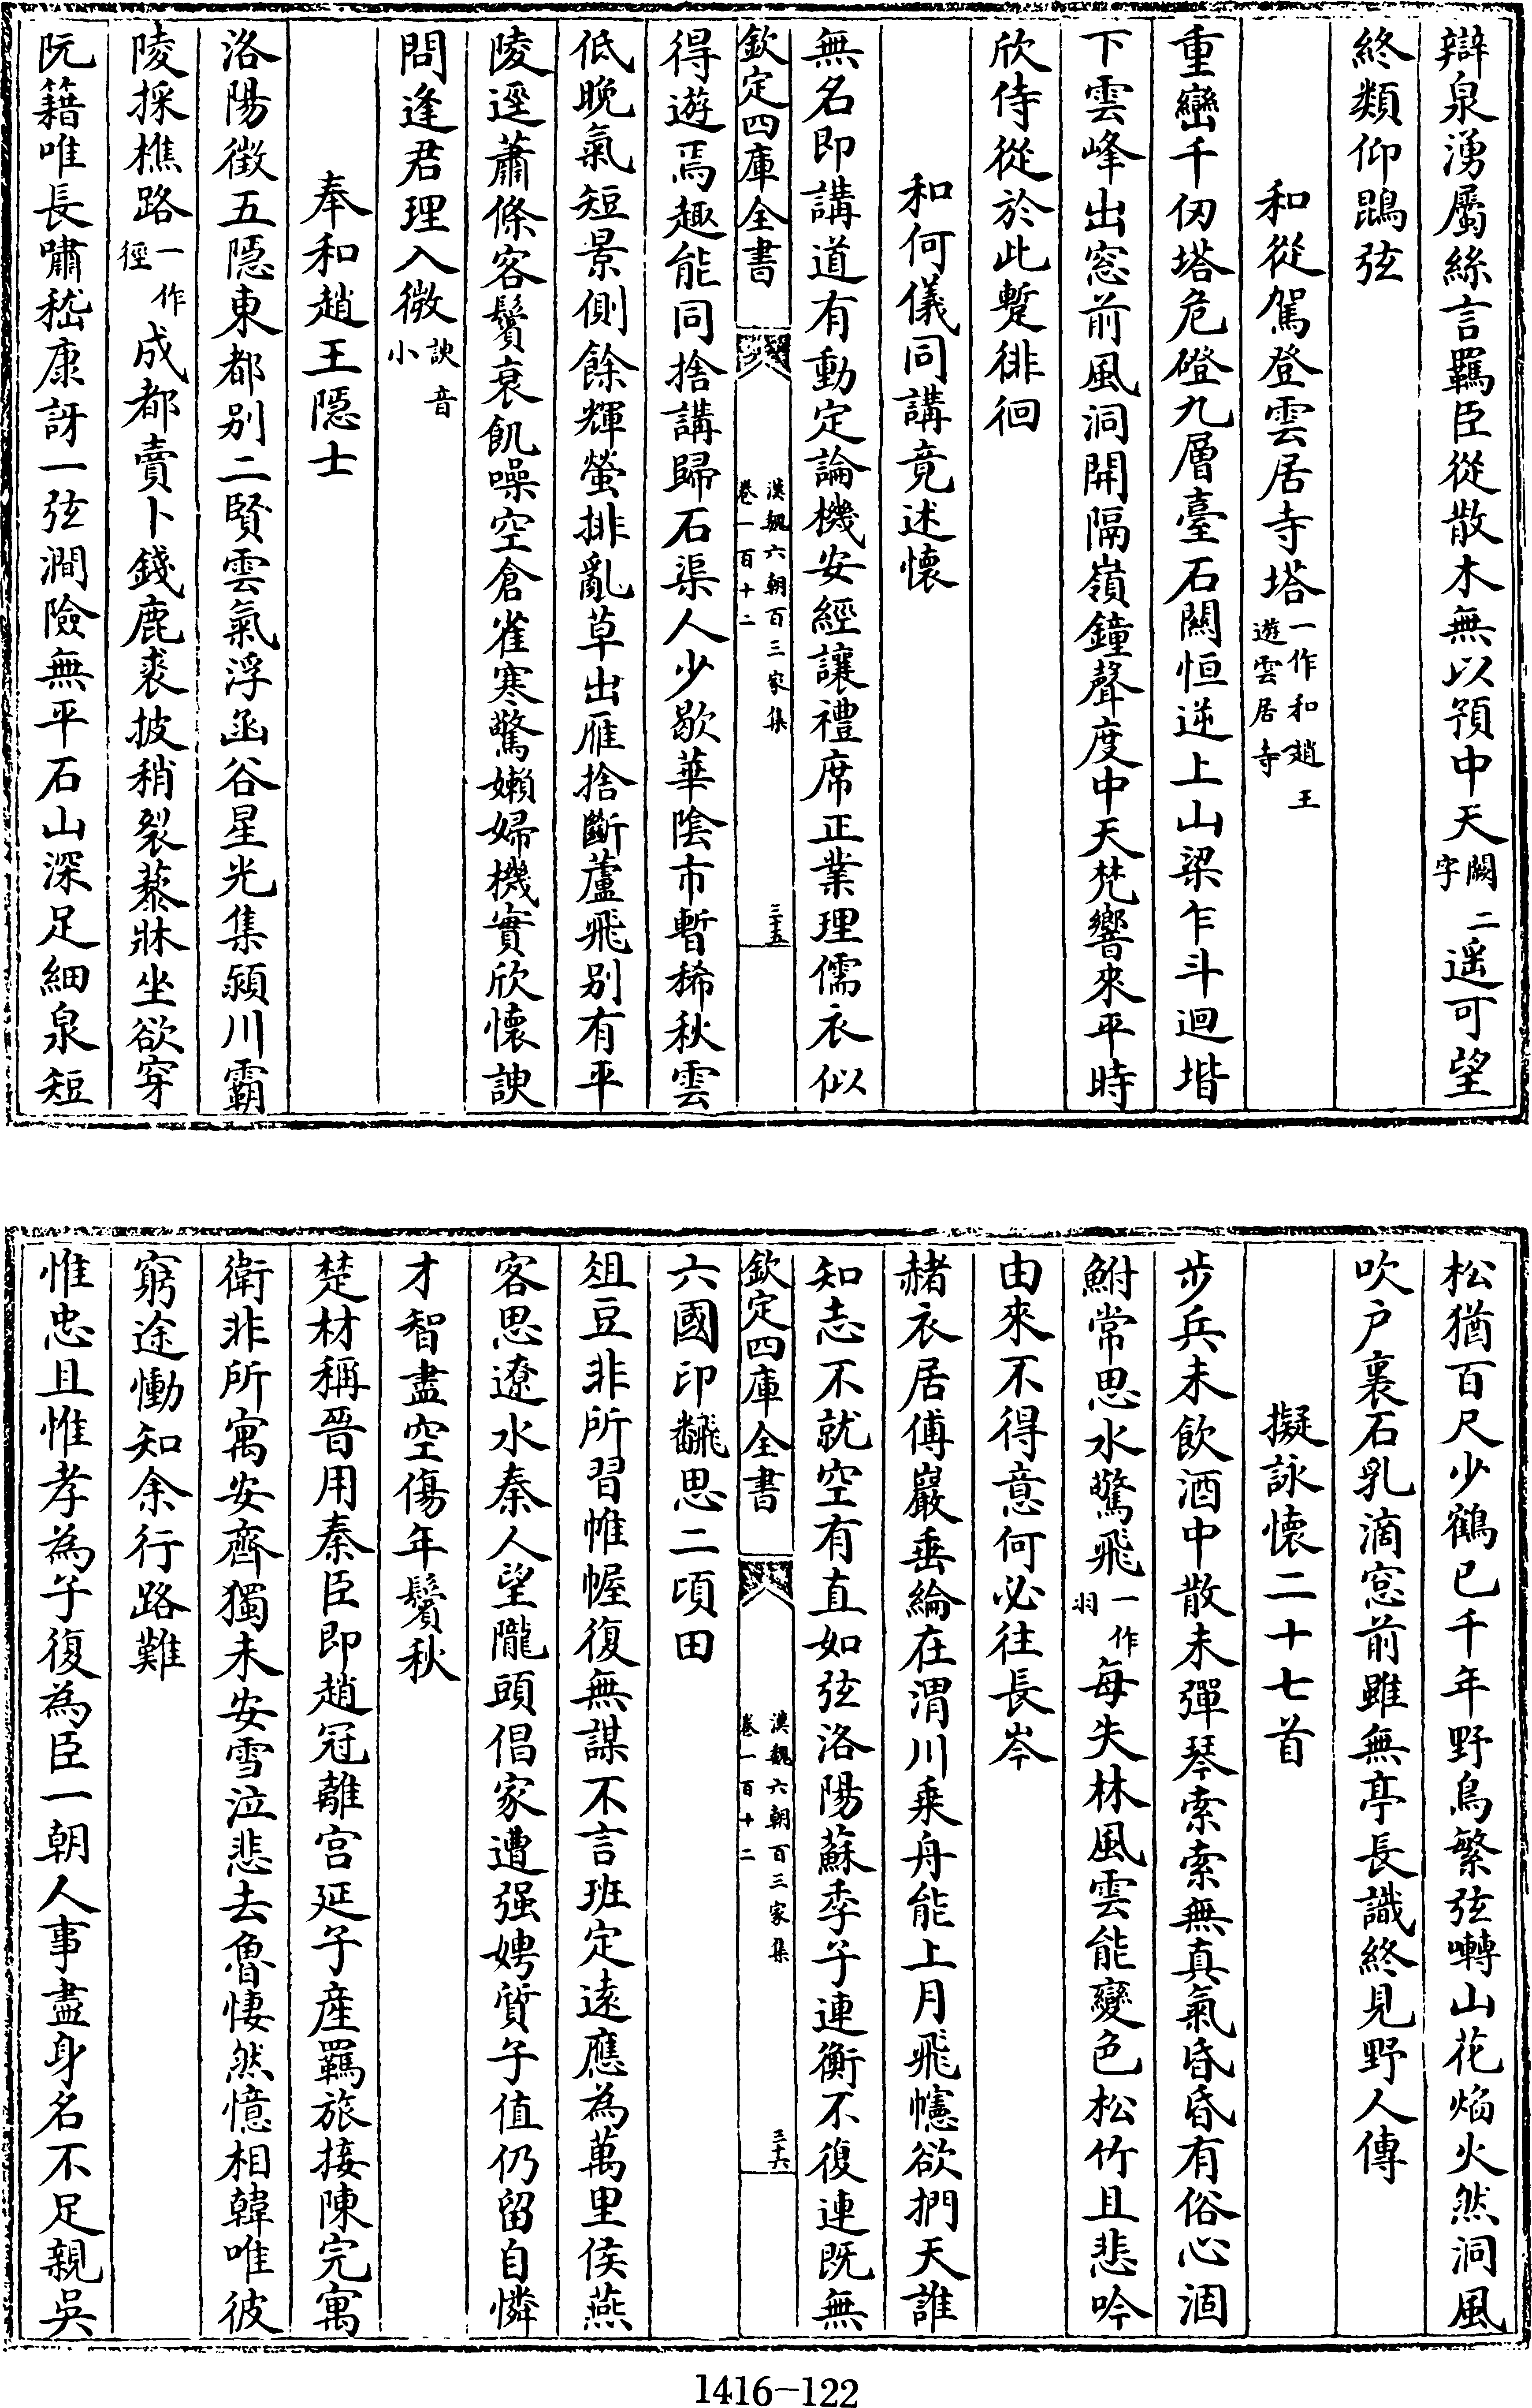 辯泉湧屬絲言羈臣從散木無以預中天闕二字遥可望
終類仰鵾弦
和從駕登雲居寺塔一作和趙王遊雲居寺
重巒千仞塔危磴九層臺石關恒逆上山梁乍斗迴堦
下雲峰出窓前風洞開隔嶺鐘聲度中天梵響來平時
欣侍從於此蹔徘徊
和何儀同講竟述懐
無名即講道有動定論機安經讓禮席正業理儒衣似
欽定四庫全書
漢魏六朝百三家集
卷一百十二
三五
得遊焉趣能同捨講歸石渠人少歇華隂市暫稀秋雲
低晩氣短景側餘輝螢排亂草出雁捨斷蘆飛别有平
陵逕蕭條客鬢衰飢噪空倉雀寒驚嬾婦機實欣懐謏
問逢君理入微謏音小
奉和趙王隱士
洛陽徵五隠東都别二賢雲氣浮函谷星光集潁川霸
陵採樵路一作徑成都賣卜錢鹿裘披稍裂藜牀坐欲穿
阮籍唯長嘯嵇康訝一弦澗險無平石山深足細泉短
松猶百尺少鶴已千年野鳥繁弦囀山花焰火然洞風
吹户裏石乳滴窓前雖無亭長識終見野人傳
擬詠懐二十七首
步兵未飲酒中散未彈琴索索無真氣昏昏有俗心涸
鮒常思水驚飛一作羽每失林風雲能變色松竹且悲吟
由來不得意何必往長岑
赭衣居傅巖垂綸在渭川乗舟能上月飛幰欲捫天誰
知志不就空有直如弦洛陽蘇季子連衡不復連既無
欽定四庫全書
漢魏六朝百三家集
卷一百十二
三六
六國印飜思二頃田
俎豆非所習帷幄復無謀不言班定逺應為萬里侯燕
客思遼水秦人望隴頭倡家遭强娉質子值仍留自憐
才智盡空傷年鬢秋
楚材稱晉用秦臣即趙冠離宫延子産羈旅接陳完寓
衛非所寓安齊獨未安雪泣悲去魯悽然憶相韓唯彼
窮途慟知余行路難
惟忠且惟孝為子復為臣一朝人事盡身名不足親吳
1416-122